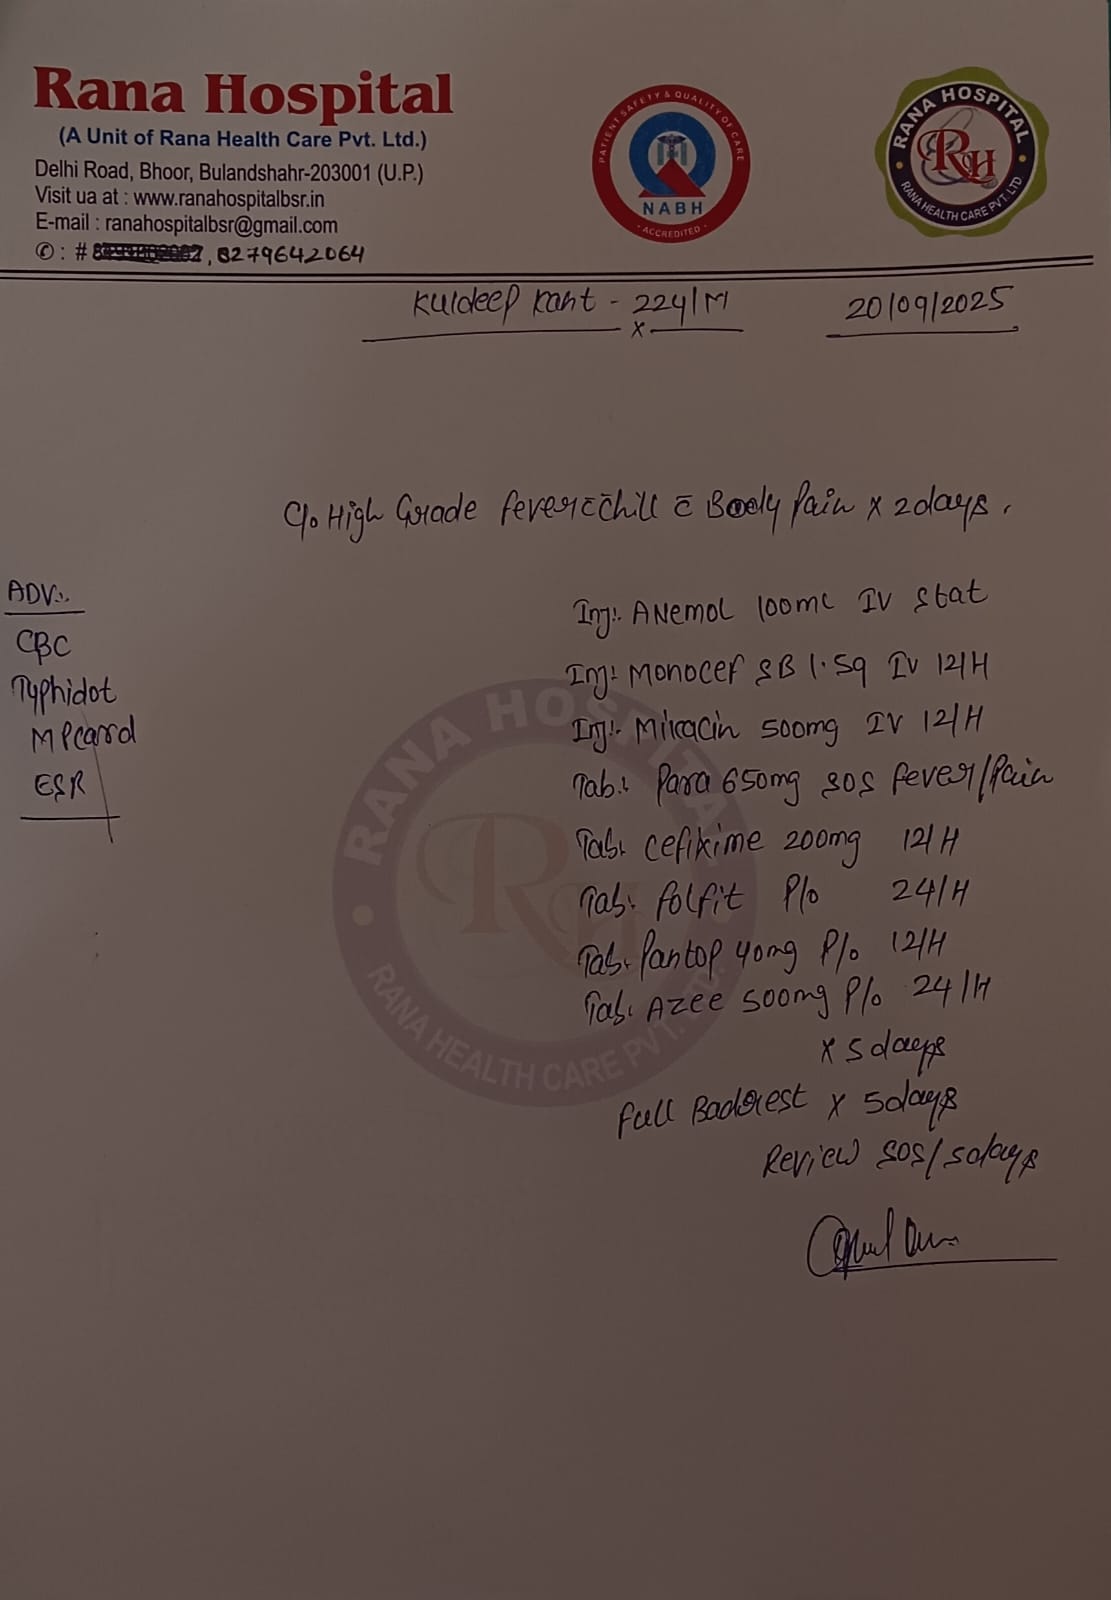 Rana Hospital
(A Unit of Rana Health Care Pvt. Ltd.)
Delhi Road, Bhoor, Bulandshahr-203001 (U.P.)
Visit ua at : www.ranahospitalbsr.in
E-mail : ranahospitalbsr@gmail.com
✆ : # , 8279642064
PATIENT SAFETY & QUALITY OF CARE
NABH
ACCREDITED
RANA HOSPITAL
RH
RANA HEALTH CARE PVT. LTD.
Kuldeep Kant - 22y/M
20/09/2025
C/o High Grade fever c̄ chill c̄ Body Pain x 2days.
ADV:.
CBC
Typhidot
MP card
ESR
Inj:. ANemol 100ml IV Stat
Inj: Monocef SB 1.5g IV 12/H
Inj:. Mikacin 500mg IV 12/H
Tab: Para 650mg SOS fever/Pain
Tab: Cefixime 200mg 12/H
Tab: folfit P/o 24/H
Tab. Pantop 40mg P/o 12/H
Tab: Azee 500mg P/o 24/H
x 5 days
full Badrest x 5days
Review SOS/5days
RANA HOSPITAL
RH
RANA HEALTH CARE PVT. LTD.